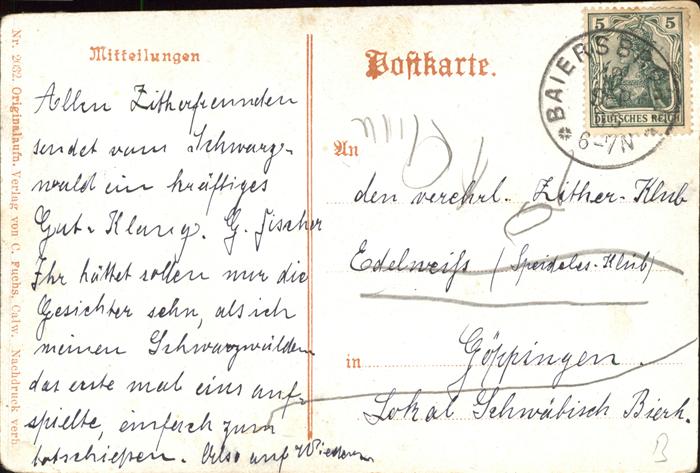 Mitteilungen
Allen Zitherfreunden
sendet vom Schwarz-
wald ein kräftiges
Gut-Klang. G. Fischer
Ihr hättet sollen nur die
Gesichter sehn, als ich
meinen Schwarzwäldern
das erste mal eins auf-
spielte, einfach zum
totschießen. Also auf Wiedersn
Postkarte.
An
den verehrl. Zither-Klub
Edelweiß (Speideles-Klub)
in Göppingen.
Lokal Schwäbisch Bierh.
B
5 5
DEUTSCHES REICH
BAIERSBR
6-7N
Nr. 2632. Originalaufn. Verlag von C. Fuchs, Calw. Nachdruck verb.